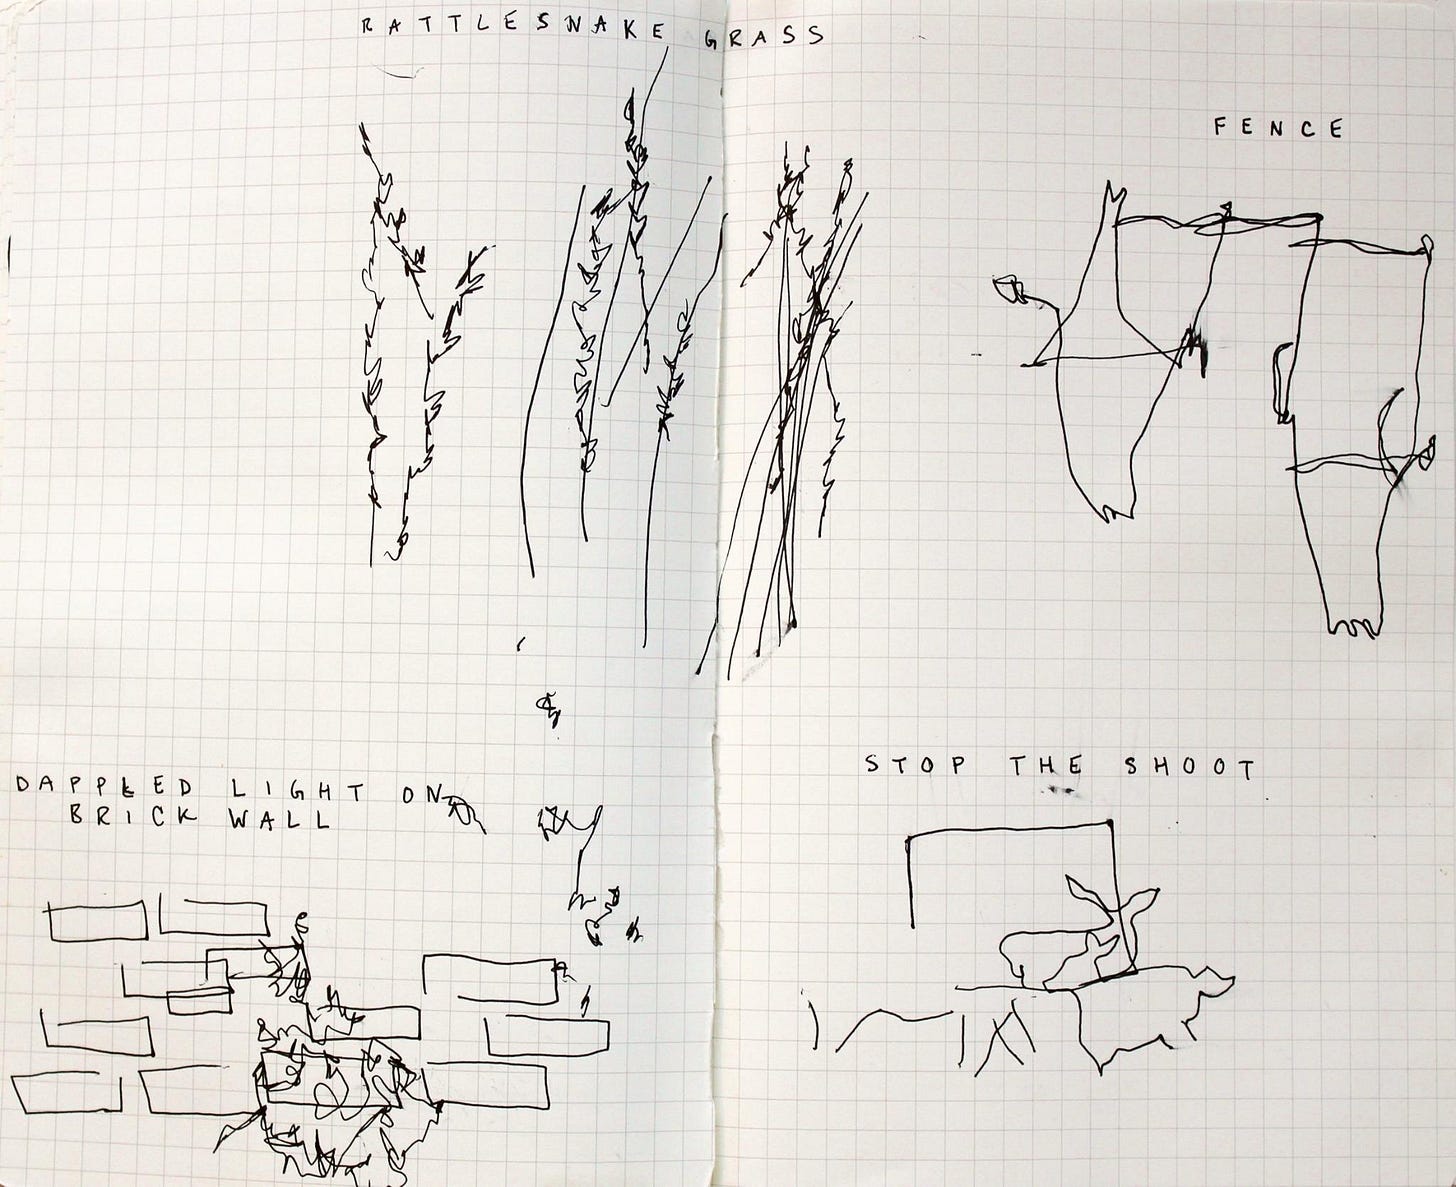 RATTLESNAKE GRASS
FENCE
DAPPLED LIGHT ON
BRICK WALL
STOP THE SHOOT